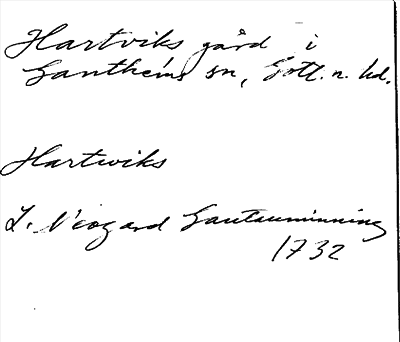 Hartviks gård i
Ganthems sn, Gotl. n. hd.
Hartwiks
L. Neogard Gautauminning
1732